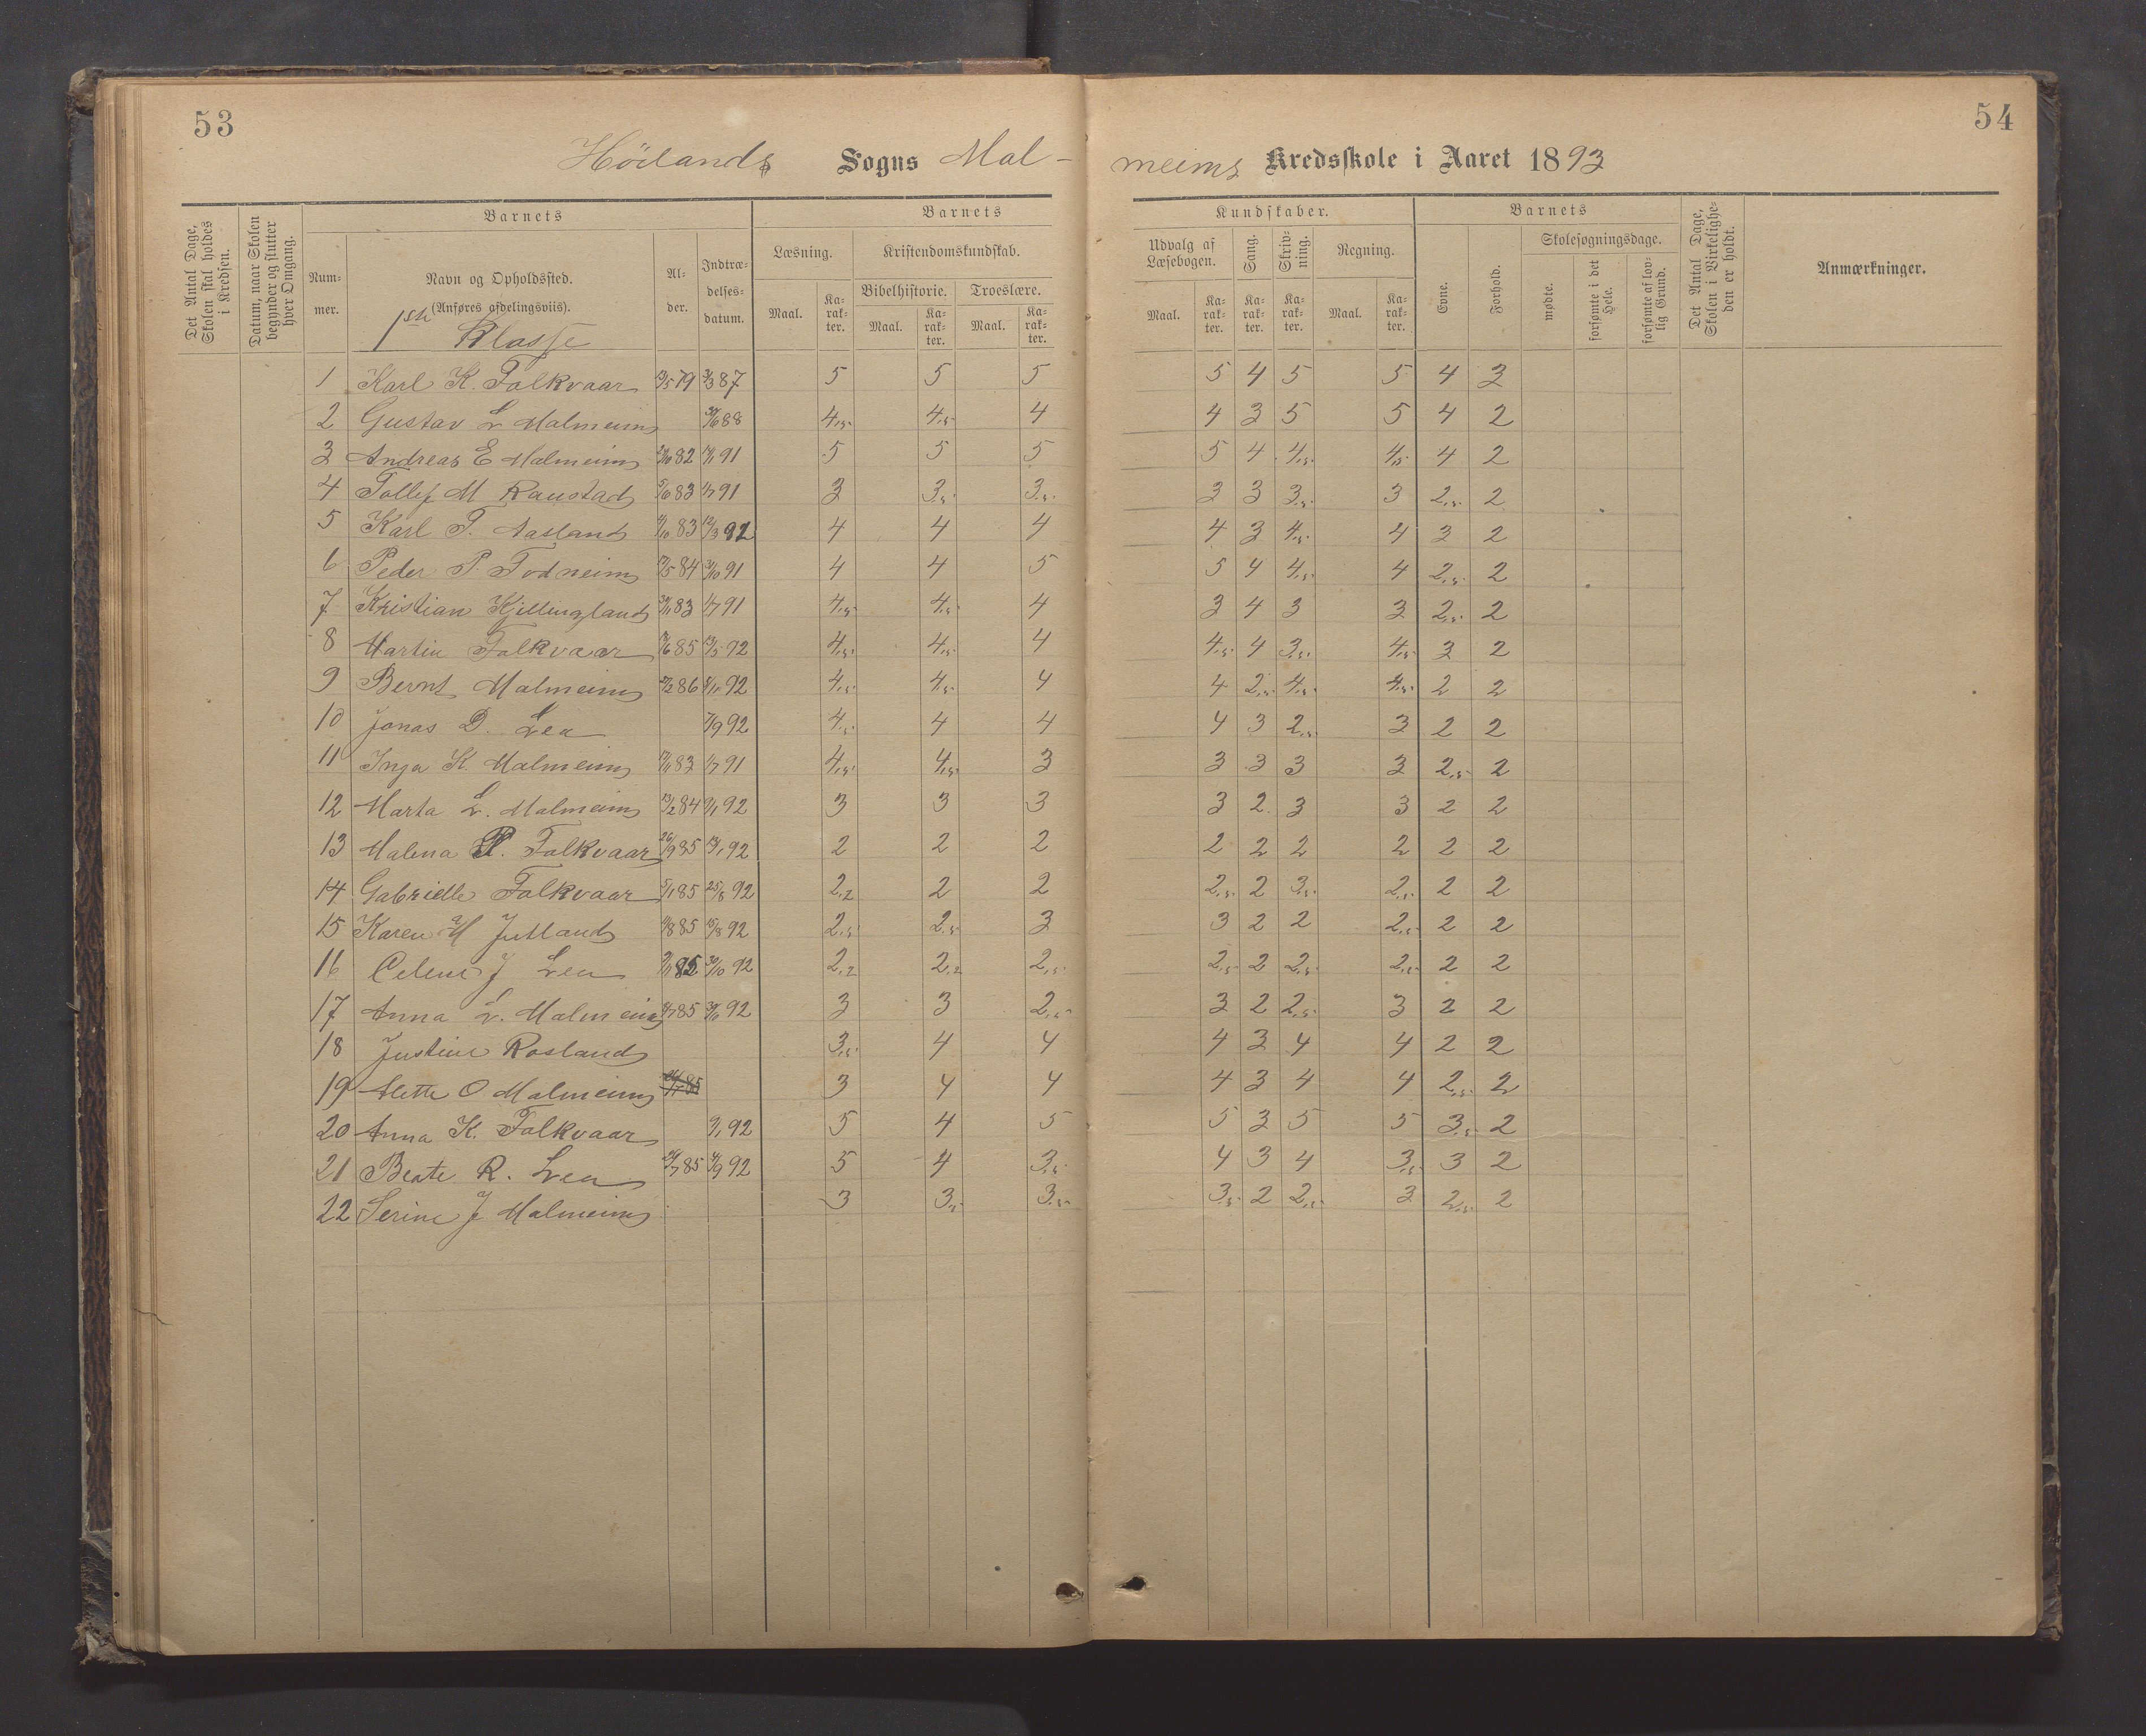 53
54
Höilands Sogns Mal-
meims Kredsskole i Aaret 1893
Det Antal Dage, Skolen skal holdes i Kredsen.
Datum, naar Skolen begynder og slutter hver Omgang.
Barnets
Nummer.
Navn og Opholdssted.
(Anføres afdelingsviis).
1ste Klasse
Alder.
Indtrædelsesdatum.
Barnets
Læsning.
Kristendomskundskab.
Bibelhistorie.
Troeslære.
Maal.
Karakter.
Maal.
Karakter.
Maal.
Karakter.
Kundskaber.
Udvalg af Læsebogen.
Sang.
Skrivning.
Regning.
Maal.
Karakter.
Karakter.
Karakter.
Maal.
Karakter.
Barnets
Evne.
Forhold.
Skolesøgningsdage.
mødte.
forsømte i det Hele.
forsømte af lovlig Grund.
Det Antal Dage, Skolen i Virkeligheden er holdt.
Anmærkninger.
1 Karl K. Folkvaar 79 2/3 87 5 5 5 5 4 5 5 4 3
2 Gustav L Malmeim 88 4,5 4,5 4 4 3 5 5 4 2
3 Andreas E Malmeim 82 91 5 5 5 5 4 4,5 4,5 4 2
4 Tollef M Raustad 5/6 83 1/7 91 3 3,5 3,5 3 3 3,5 3 2,5 2
5 Karl T. Aasland 83 12/3 92 4 4 4 4 3 4,5 4 3 2
6 Peder P. Fodneim 84 91 4 4 5 5 4 4,5 4 2,5 2
7 Kristian Kjellingland 83 1/7 91 4,5 4,5 4 3 4 3 3 2,5 2
8 Martin Folkvaar 85 13/5 92 4,5 4,5 4 4,5 4 3,5 4,5 3 2
9 Bernt Malmeim 86 92 4,5 4,5 4 4 2,5 4,5 4,5 2 2
10 Jonas D. Lea 7/9 92 4,5 4 4 4 3 2,5 3 2 2
11 Inga K. Malmeim 83 1/7 91 4,5 4,5 3 3 3 3 3 2,5 2
12 Marta L. Malmeim 13/2 84 9/1 92 3 3 3 3 2 3 3 2 2
13 Malena P. Folkvaar 26/9 85 92 2 2 2 2 2 2 2 2 2
14 Gabrielle Folkvaar 5/1 85 25/8 92 2,2 2 2 2,5 2 3,5 2,5 2 2
15 Karen M Jutland 85 15/8 92 2,5 2,5 3 3 2 2 2,5 2 2
16 Celene J Lea 85 30/10 92 2,2 2,2 2,5 2,5 2 2,5 2,5 2 2
17 Anna L. Malmeim 85 30/10 92 3 3 2,5 3 2 2,5 3 2 2
18 Justine Rosland 3,5 4 4 4 3 4 4 2 2
19 Mette O Malmeim 85 3 4 4 4 3 4 4 2,5 2
20 Anna K. Folkvaar 9/1 92 5 4 5 5 3 5 5 3,5 2
21 Beate R. Lea 24/7 85 92 5 4 3,5 4 3 4 3,5 3 2
22 Serine J Malmeim 3 3,5 3,5 3,5 2 2,5 3 2,5 2